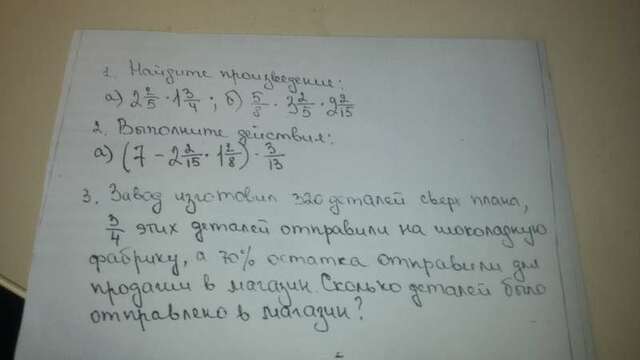 1. Найдите произведения:
а) 2 2/5 · 1 3/4 ; б) 5/8 · 3 2/5 · 2 2/15
2. Выполните действия:
а) (7 - 2 2/15 · 1 7/8) · 3/13
3. Завод изготовил 320 деталей сверх плана,
3/4 этих деталей отправили на шоколадную
фабрику, а 70% остатка отправили для
продажи в магазин. Сколько деталей было
отправлено в магазин?